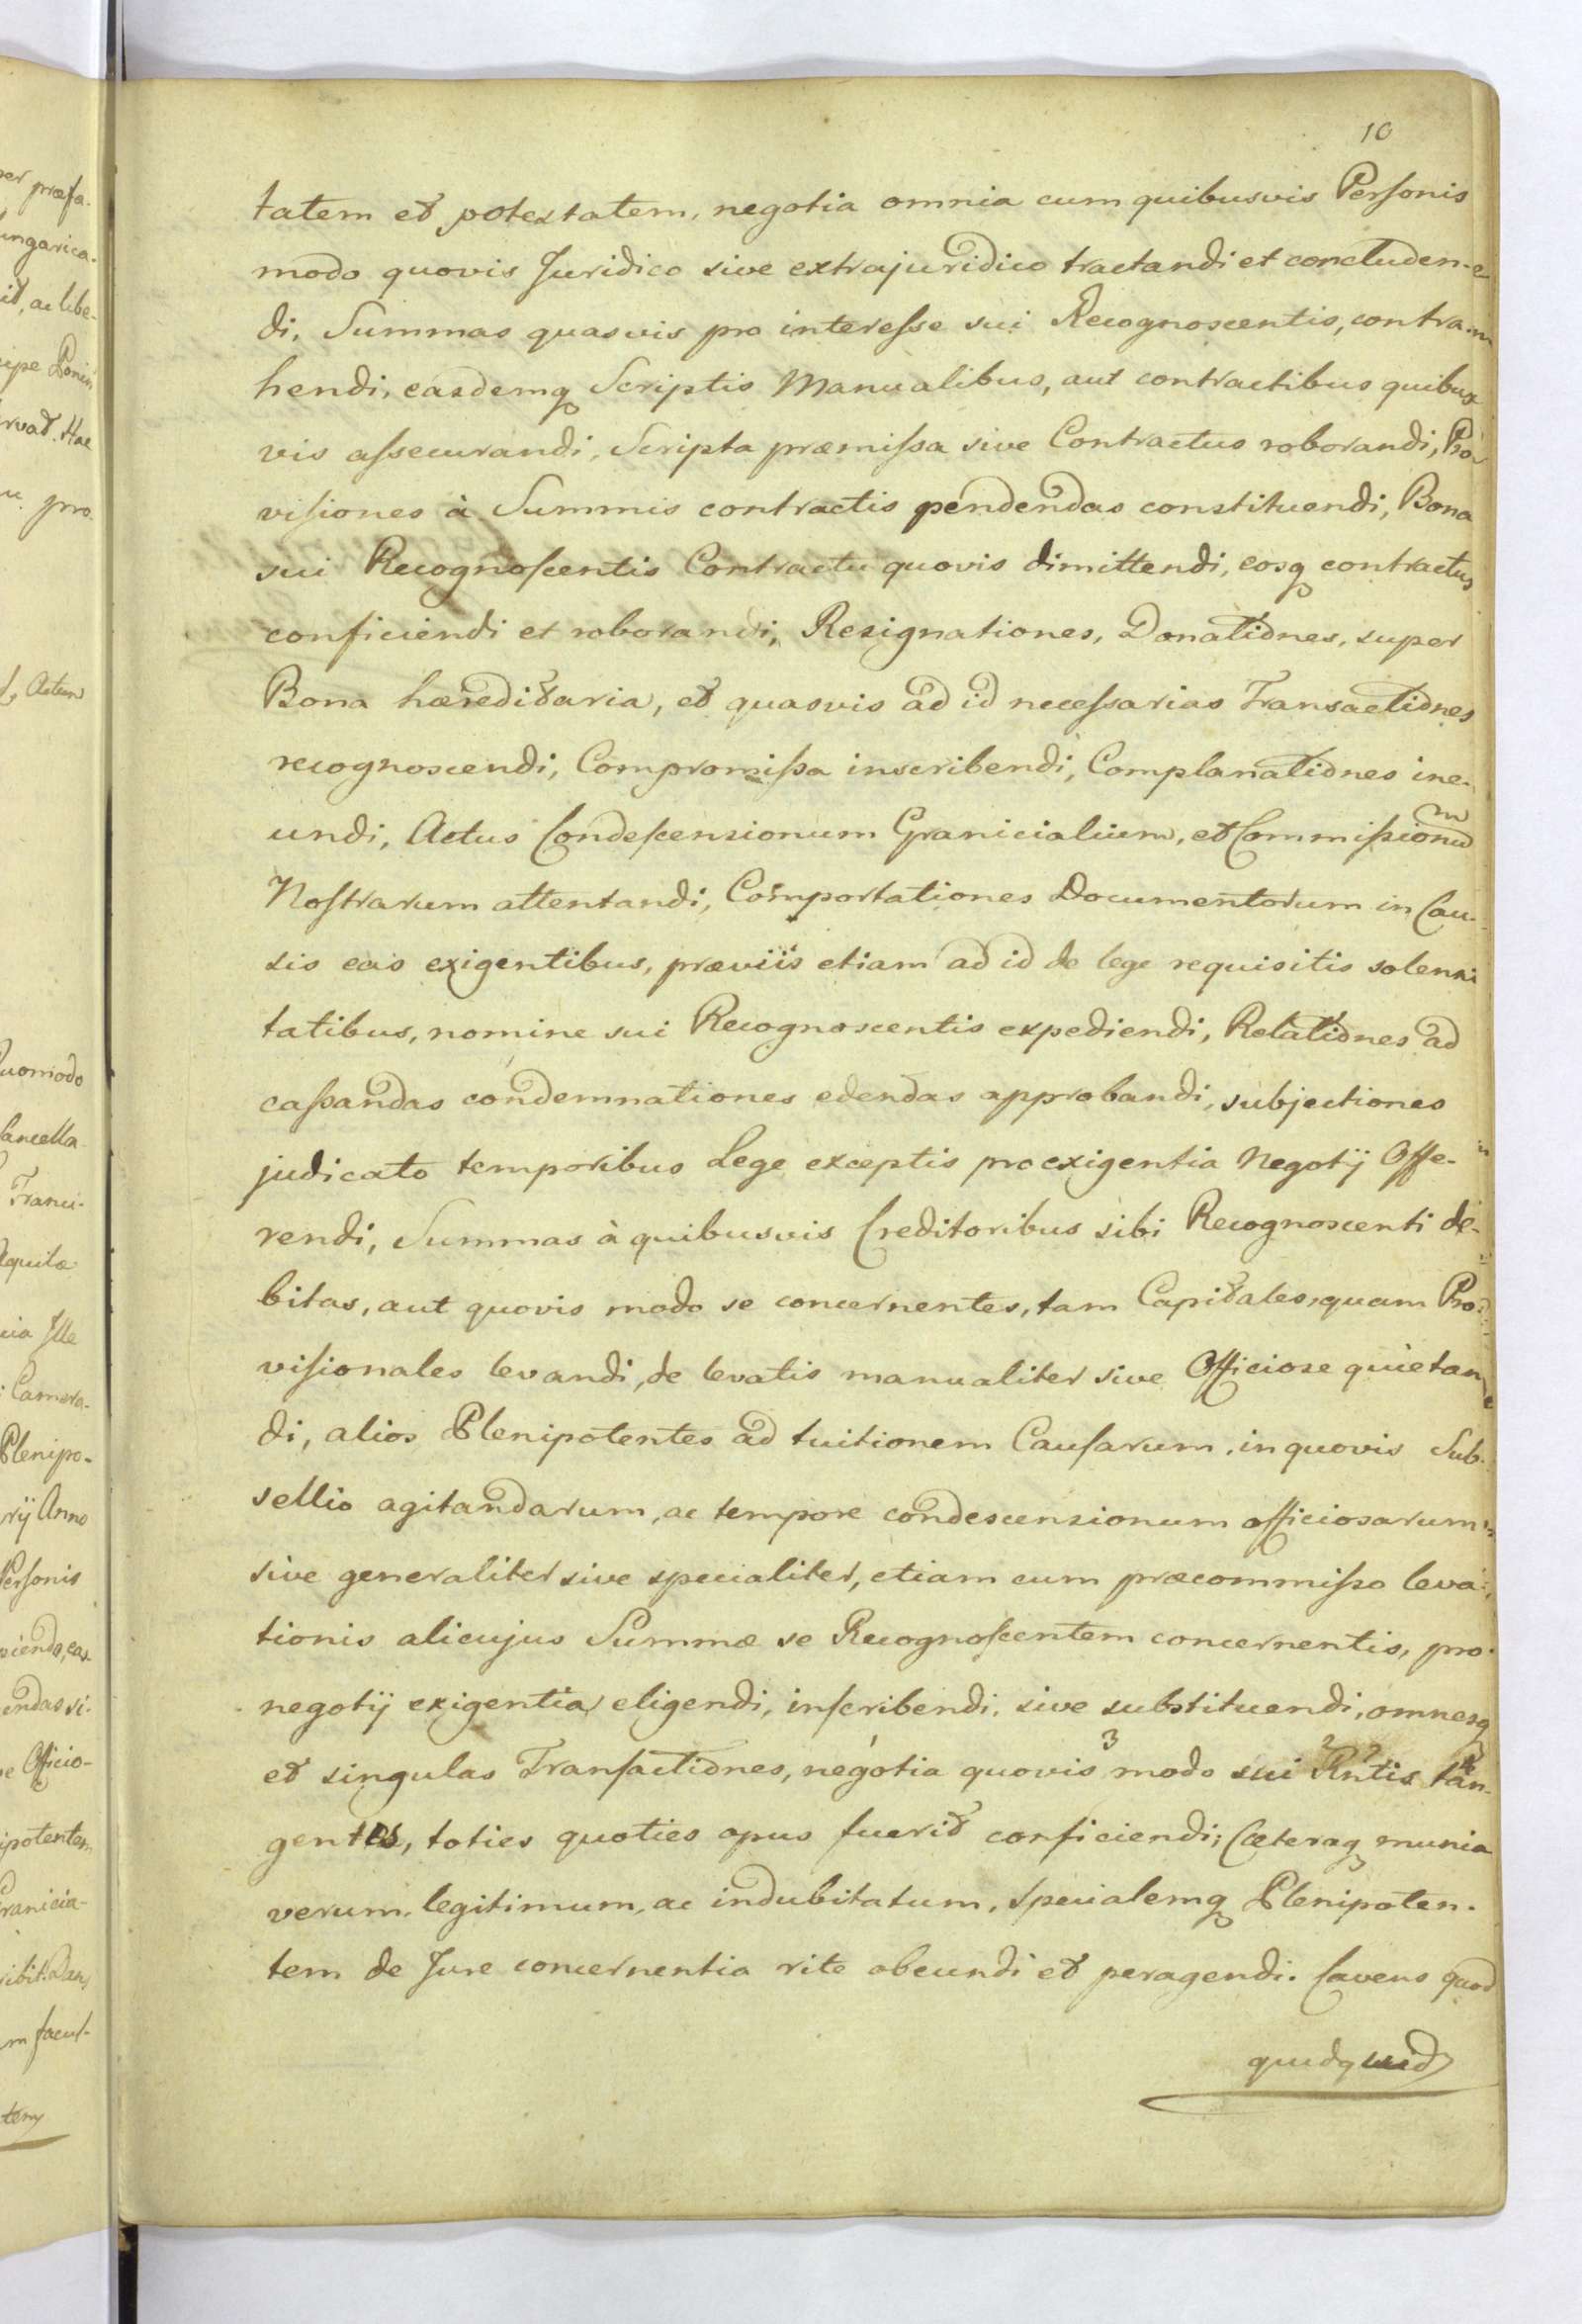 10
tatem et potestatem, negotia omnia cum quibusvis Personis
modo quovis Juridico sive extrajuridico tractandi et concluden-
di, Summas quasvis pro interesse sui Recognoscentis, contra-
hendi, easdemq Scriptis Manualibus, aut contractibus quibus
vis assecurandi, Scripta præmissa sive Contractus roborandi, Pro
visiones à Summis contractis pendendas constituendi, Bona
sui Recognoscentis Contractu quovis dimittendi, eosq contractus
conficiendi et roborandi, Resignationes, Donationes, super
Bona hæreditaria, et quasvis ad id necessarias Transactiones
recognoscendi, Compromissa inscribendi, Complanationes ine-
undi, Actus Condescensionum Granicialium, et Commissionum
Nostrarum attentandi, Comportationes Documentorum in Cau-
sis eas exigentibus, præviis etiam ad id de lege requisitis solenni
tatibus, nomine sui Recognoscentis expediendi, Relationes ad
cassandas condemnationes edendas approbandi, subjectiones
judicato temporibus Lege exceptis pro exigentia Negotij Offe-
rendi, Summas à quibusvis Creditoribus sibi Recognoscenti de-
bitas, aut quovis modo se concernentes, tam Capitales, quam Pro
visionales levandi, de levatis manualiter sive Officiose quietan
di, alios Plenipotentes ad tuitionem Causarum, in quovis Sub-
sellio agitandarum, ac tempore condescensionum officiosarum
sive generaliter sive specialiter, etiam cum præcommisso leva-
tionis alicujus Summæ se Recognoscentem concernentis, pro
negotij exigentia eligendi, inscribendi, sive substituendi, omnesq
et singulas Transactiones, negotia quovis 3 modo sui 2 Rntis tan-
gentes, toties quoties opus fuerit conficiendi; Cæteraq munia
verum, legitimum, ac indubitatum, specialemq Plenipoten-
tem de Jure concernentia rite obeundi et peragendi. Cavens quod
quidquid